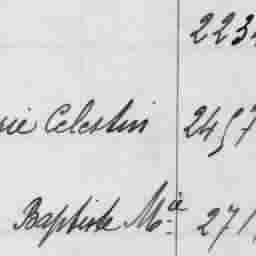 223
Celestin 2457
Baptiste M^ie 271